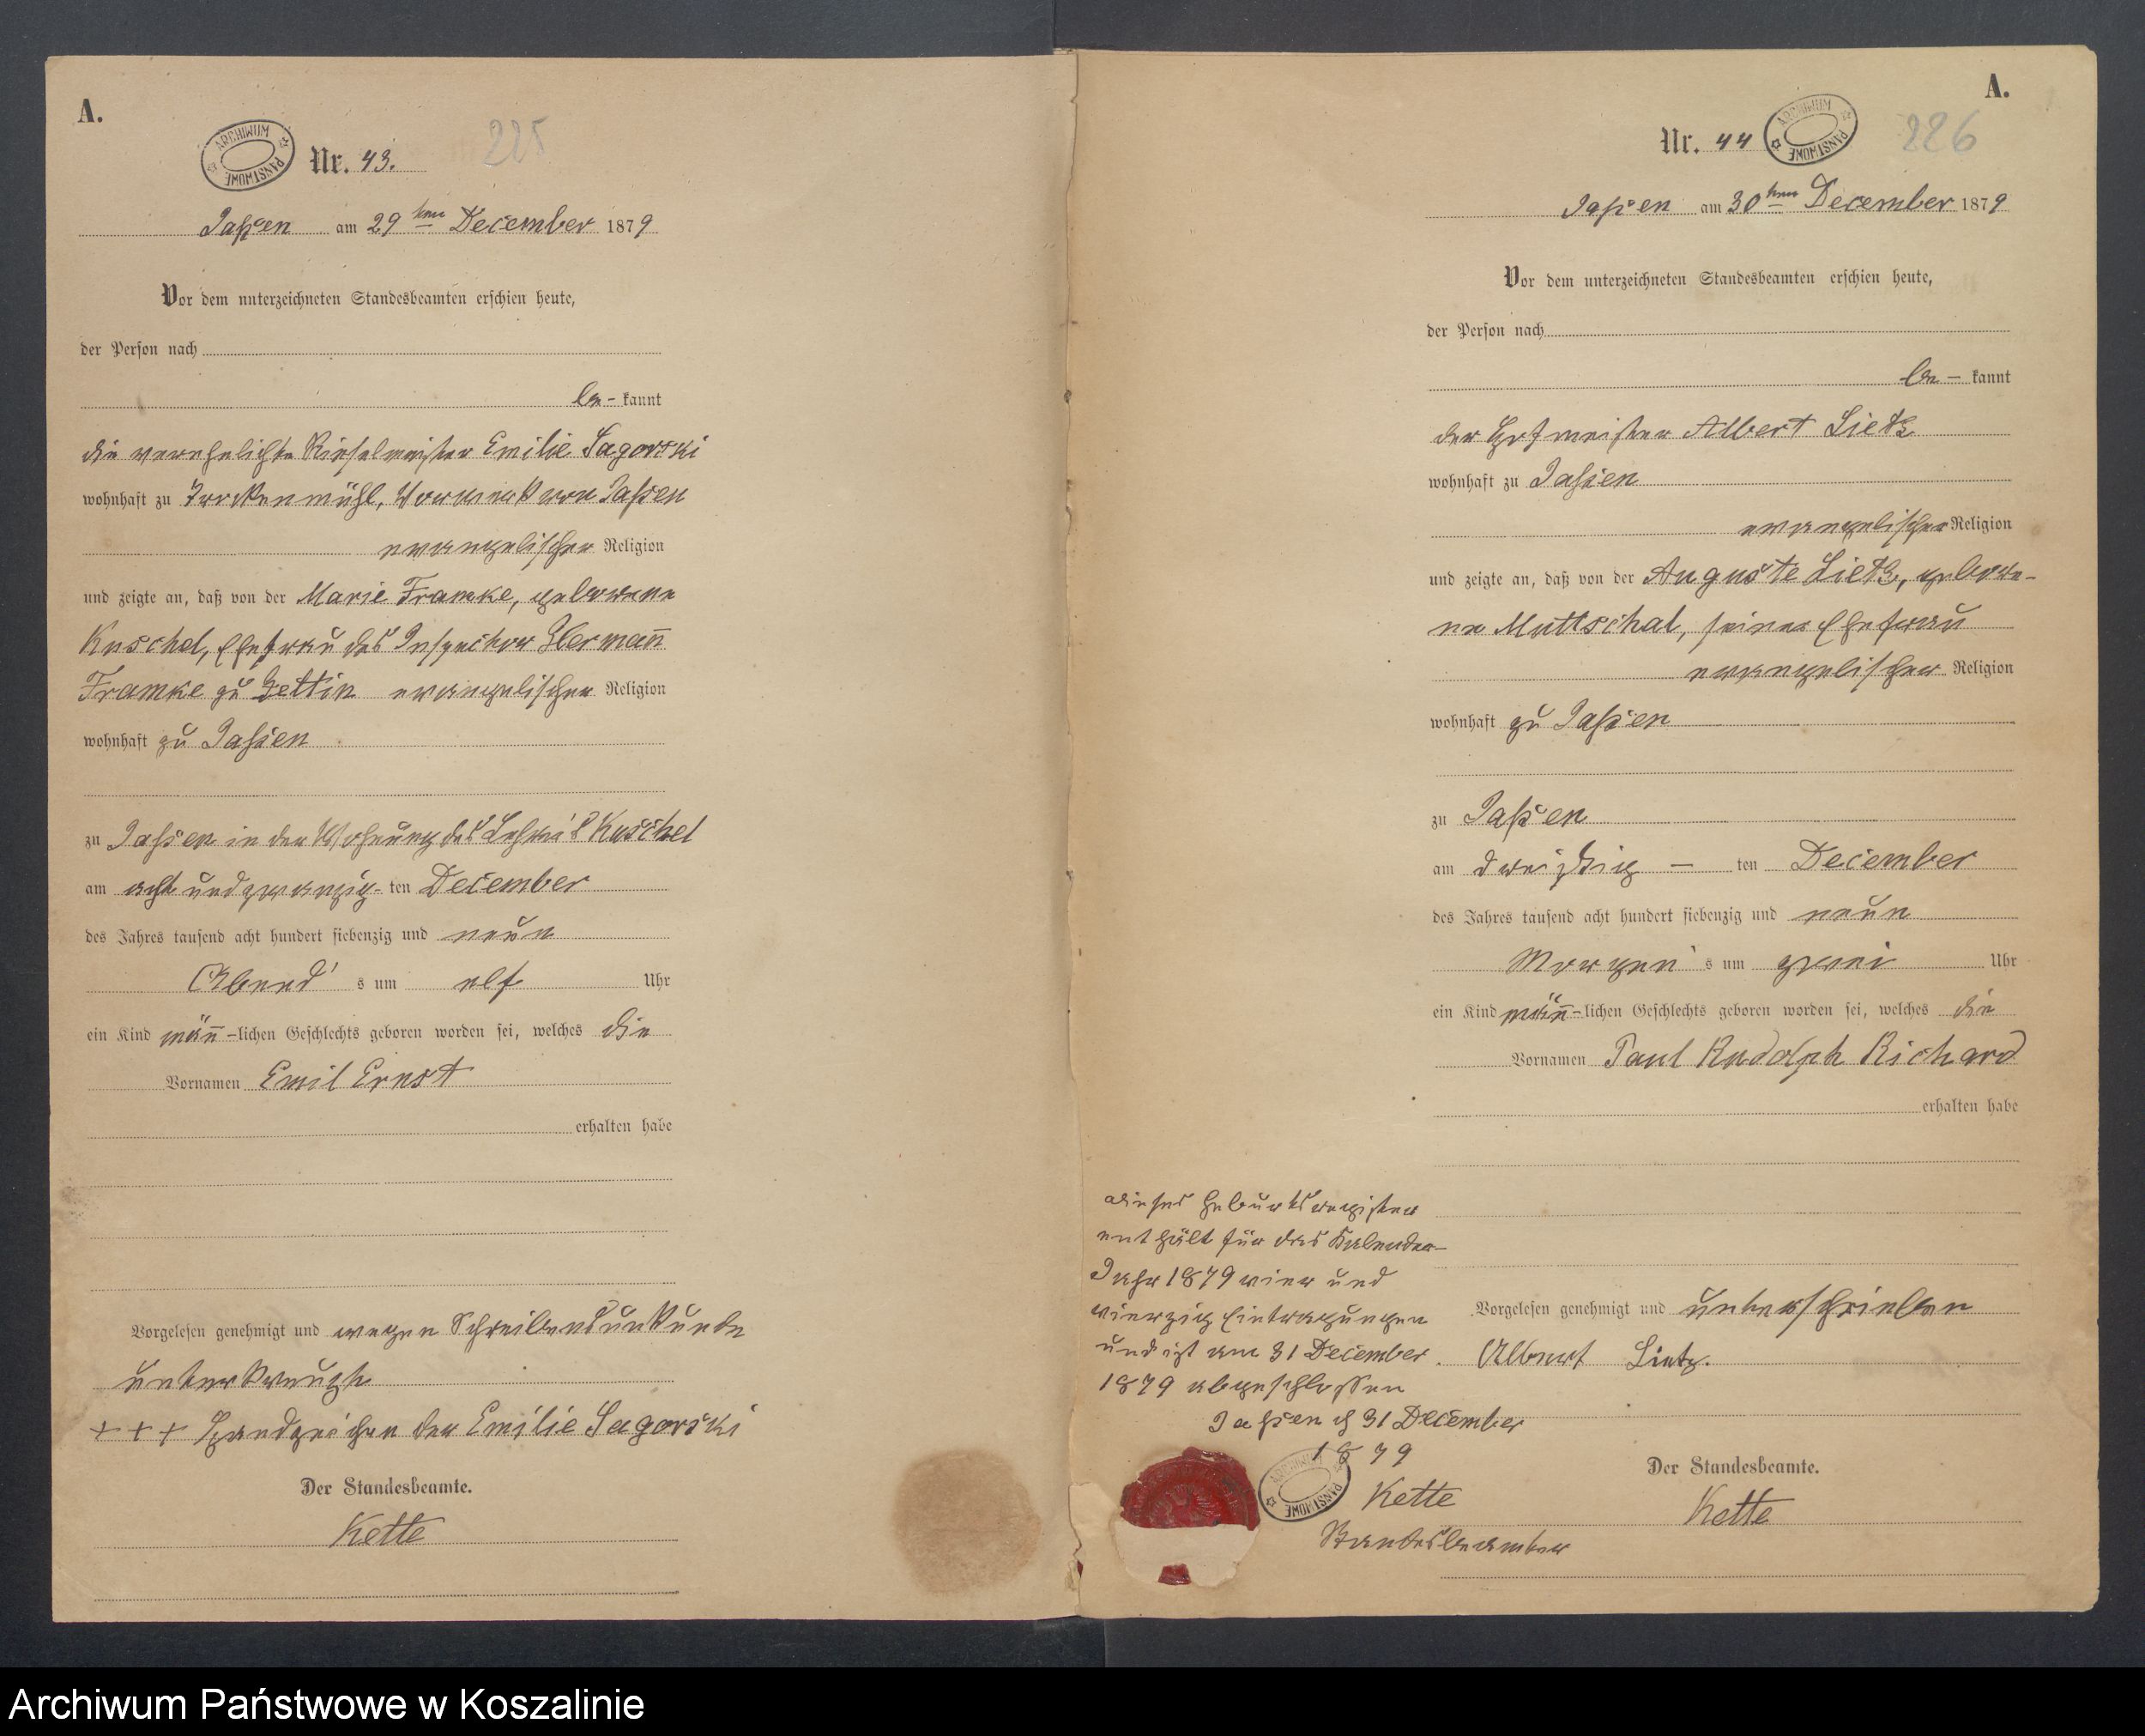 A.
ARCHIWUM PAŃSTWOWE
Nr. 43.
225
Jassen am 29ten December 1879
Vor dem unterzeichneten Standesbeamten erschien heute,
der Person nach
be- kannt
die verehelichte Rieselmeister Emilie Sagorski
wohnhaft zu Vorwerk von Jassen
evangelischer Religion
und zeigte an, daß von der Marie Framke, geborene
Kuschel, Ehefrau des Inspector Hermann̄
Framke zu Zettin evangelischer Religion
wohnhaft zu Jassen
zu Jassen in der Wohnung des Kuschel
am acht und zwanzig-ten December
des Jahres tausend acht hundert siebenzig und neun
Abend's um elf Uhr
ein Kind män̄-lichen Geschlechts geboren worden sei, welches die
Vornamen Emil Ernst
erhalten habe
Vorgelesen genehmigt und wegen Schreibensunkunde
unterkreuzt
+++ Handzeichen der Emilie Sagorski
Der Standesbeamte.
Kette
A.
Nr. 44
ARCHIWUM PAŃSTWOWE
226
Jassen am 30ten December 1879
Vor dem unterzeichneten Standesbeamten erschien heute,
der Person nach
be- kannt
der Hofmeister Albert Lietz
wohnhaft zu Jassen
evangelischer Religion
und zeigte an, daß von der Auguste Lietz, gebore-
ne Muttschal, seiner Ehefrau
evangelischer Religion
wohnhaft zu Jassen
zu Jassen
am dreißig – ten December
des Jahres tausend acht hundert siebenzig und neun
Morgen's um zwei Uhr
ein Kind män̄-lichen Geschlechts geboren worden sei, welches die
Vornamen Paul Rudolph Richard
erhalten habe
Vorgelesen genehmigt und unterschrieben
Albert Lietz.
Der Standesbeamte.
Kette
Dieses Geburtsregister
enthält für das Kalender-
Jahr 1879 vier und
vierzig Eintragungen
und ist am 31 December
1879 abgeschlossen
Jassen d 31 December
1879
ARCHIWUM PAŃSTWOWE
Kette
Standesbeamter
Archiwum Państwowe w Koszalinie